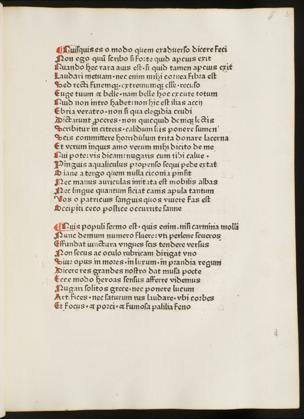 Quisquis es o modo quem ex aduerso dicere feci
Non ego quum scribo si forte quid aptius exit
Quando hec rara auis est: si quid tamen aptius exit
Laudari metuam: nec enim mihi cornea fibra est
Sed recti finemq; extremumq; esse: recuso
Euge tuum et belle: nam belle hoc excute totum
Quid non intro habet: non hic est ilias
Ebria veratro: non si qua elegidia crudi
Dictarunt proceres: non quicquid deniq; lectis
Scribitur in citreis: calidum scis ponere sumen
Scis comitem horridulum trita donare lacerna
Et verum inquis amo verum mihi dicito de me
Qui pote: vis dicam: nugaris cum tibi calue
Pinguis aqualiculus propenso sesqui pede extat
O iane a tergo quem nulla ciconia pinsit
Nec manus auriculas imitata est mobilis albas
Nec lingue quantum sitiat canis apula tantum
Vos o patricius sanguis quos viuere fas est
Occipiti ceco postice occurrite sanne
Quis populi sermo est: quis enim: nisi carmina molli
Nunc demum numero fluere: vt perleue seueros
Effundat iunctura vngues scit tendere versus
Non secus ac oculo rubricam dirigat vno
Siue opus in mores: in luxum: in prandia regum
Dicere res grandes nostro dat musa poete
Ecce modo heroas sensus afferre videmus
Nugari solitos grece: nec ponere lucum
Artifices: nec saturum rus laudare: vbi corbes
Et focus: et porci: et fumosa palilia feno